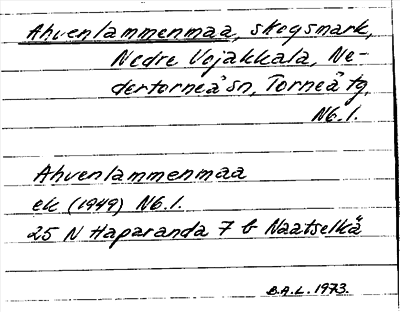 Ahvenlammenmaa, skogsmark,
Nedre Vojakkala, Ne-
dertorneå sn, Torneå tg,
N6.1.
Ahvenlammenmaa
ek (1949) N6.1.
25 N Haparanda 7 b Naatselkä
B.A.L. 1973.